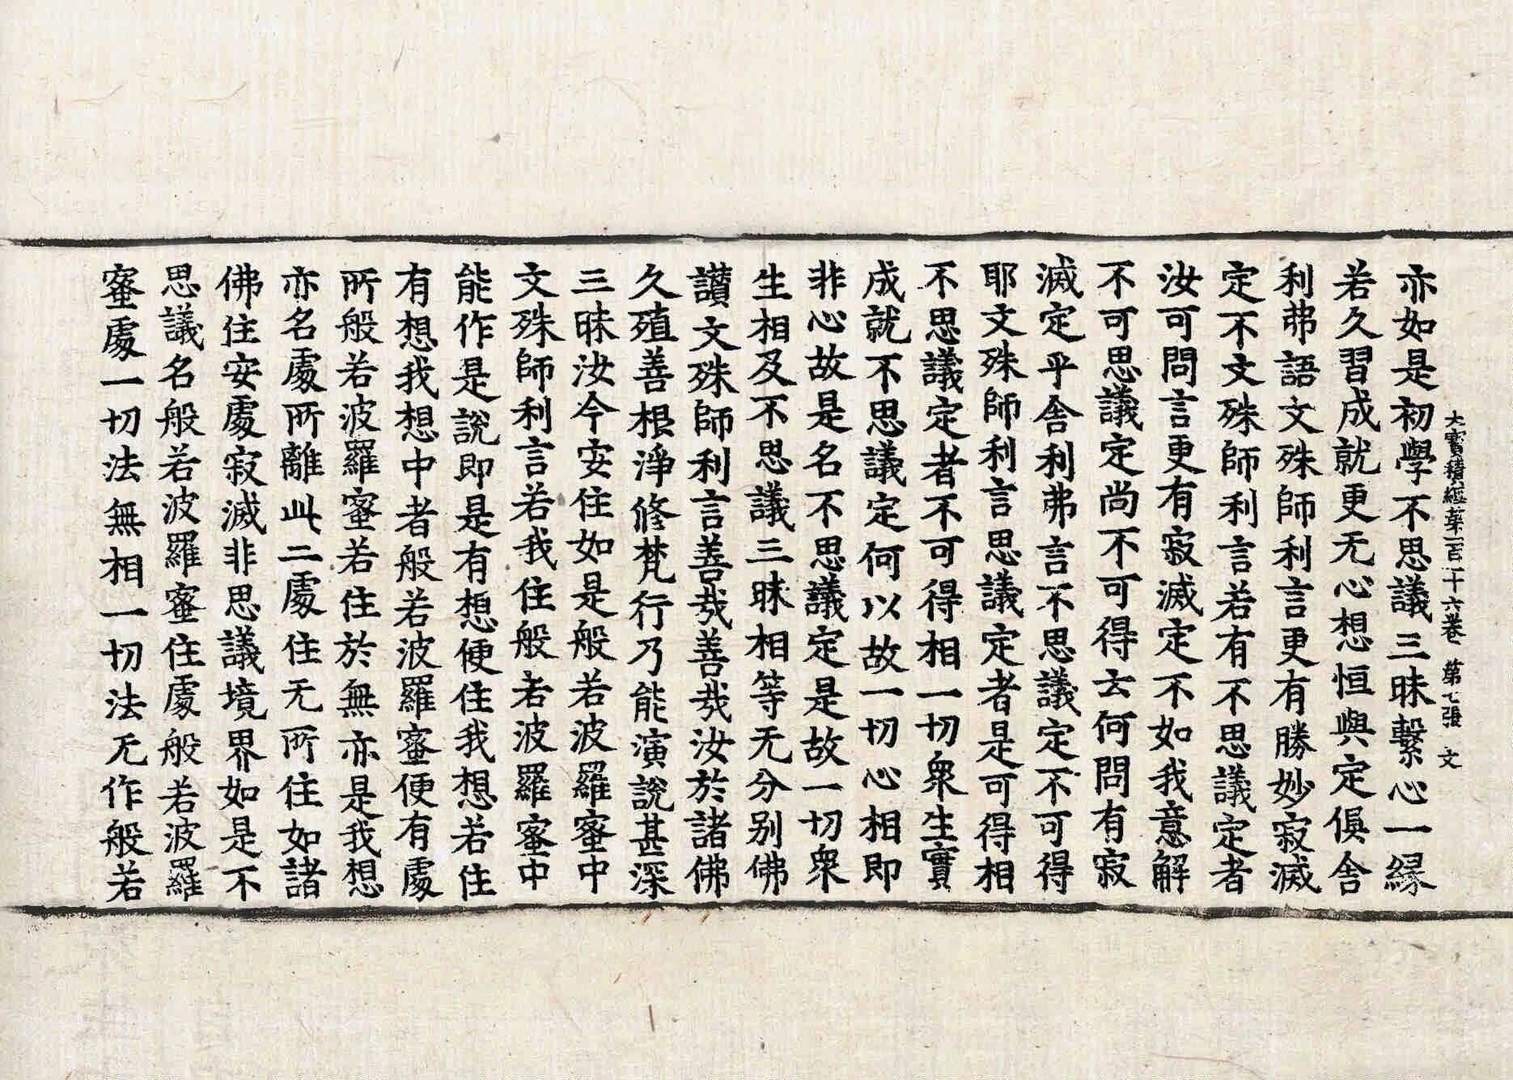 大寶積經第一百一十六卷 第七張 文
亦如是初學不思議三昧繫心一緣
若久習成就更无心想恒與定俱舍
利弗語文殊師利言更有勝妙寂滅
定不文殊師利言若有不思議定者
汝可問言更有寂滅定不如我意解
不可思議定尚不可得云何問有寂
滅定乎舍利弗言不思議定不可得
耶文殊師利言思議定者是可得相
不思議定者不可得相一切衆生實
成就不思議定何以故一切心相即
非心故是名不思議定是故一切衆
生相及不思議三昧相等无分别佛
讃文殊師利言善哉善哉汝於諸佛
久殖善根淨修梵行乃能演說甚深
三昧汝今安住如是般若波羅蜜中
文殊師利言若我住般若波羅蜜中
能作是說即是有想便住我想若住
有想我想中者般若波羅蜜便有處
所般若波羅蜜若住於無亦是我想
亦名處所離此二處住无所住如諸
佛住安處寂滅非思議境界如是不
思議名般若波羅蜜住處般若波羅
蜜處一切法無相一切法无作般若